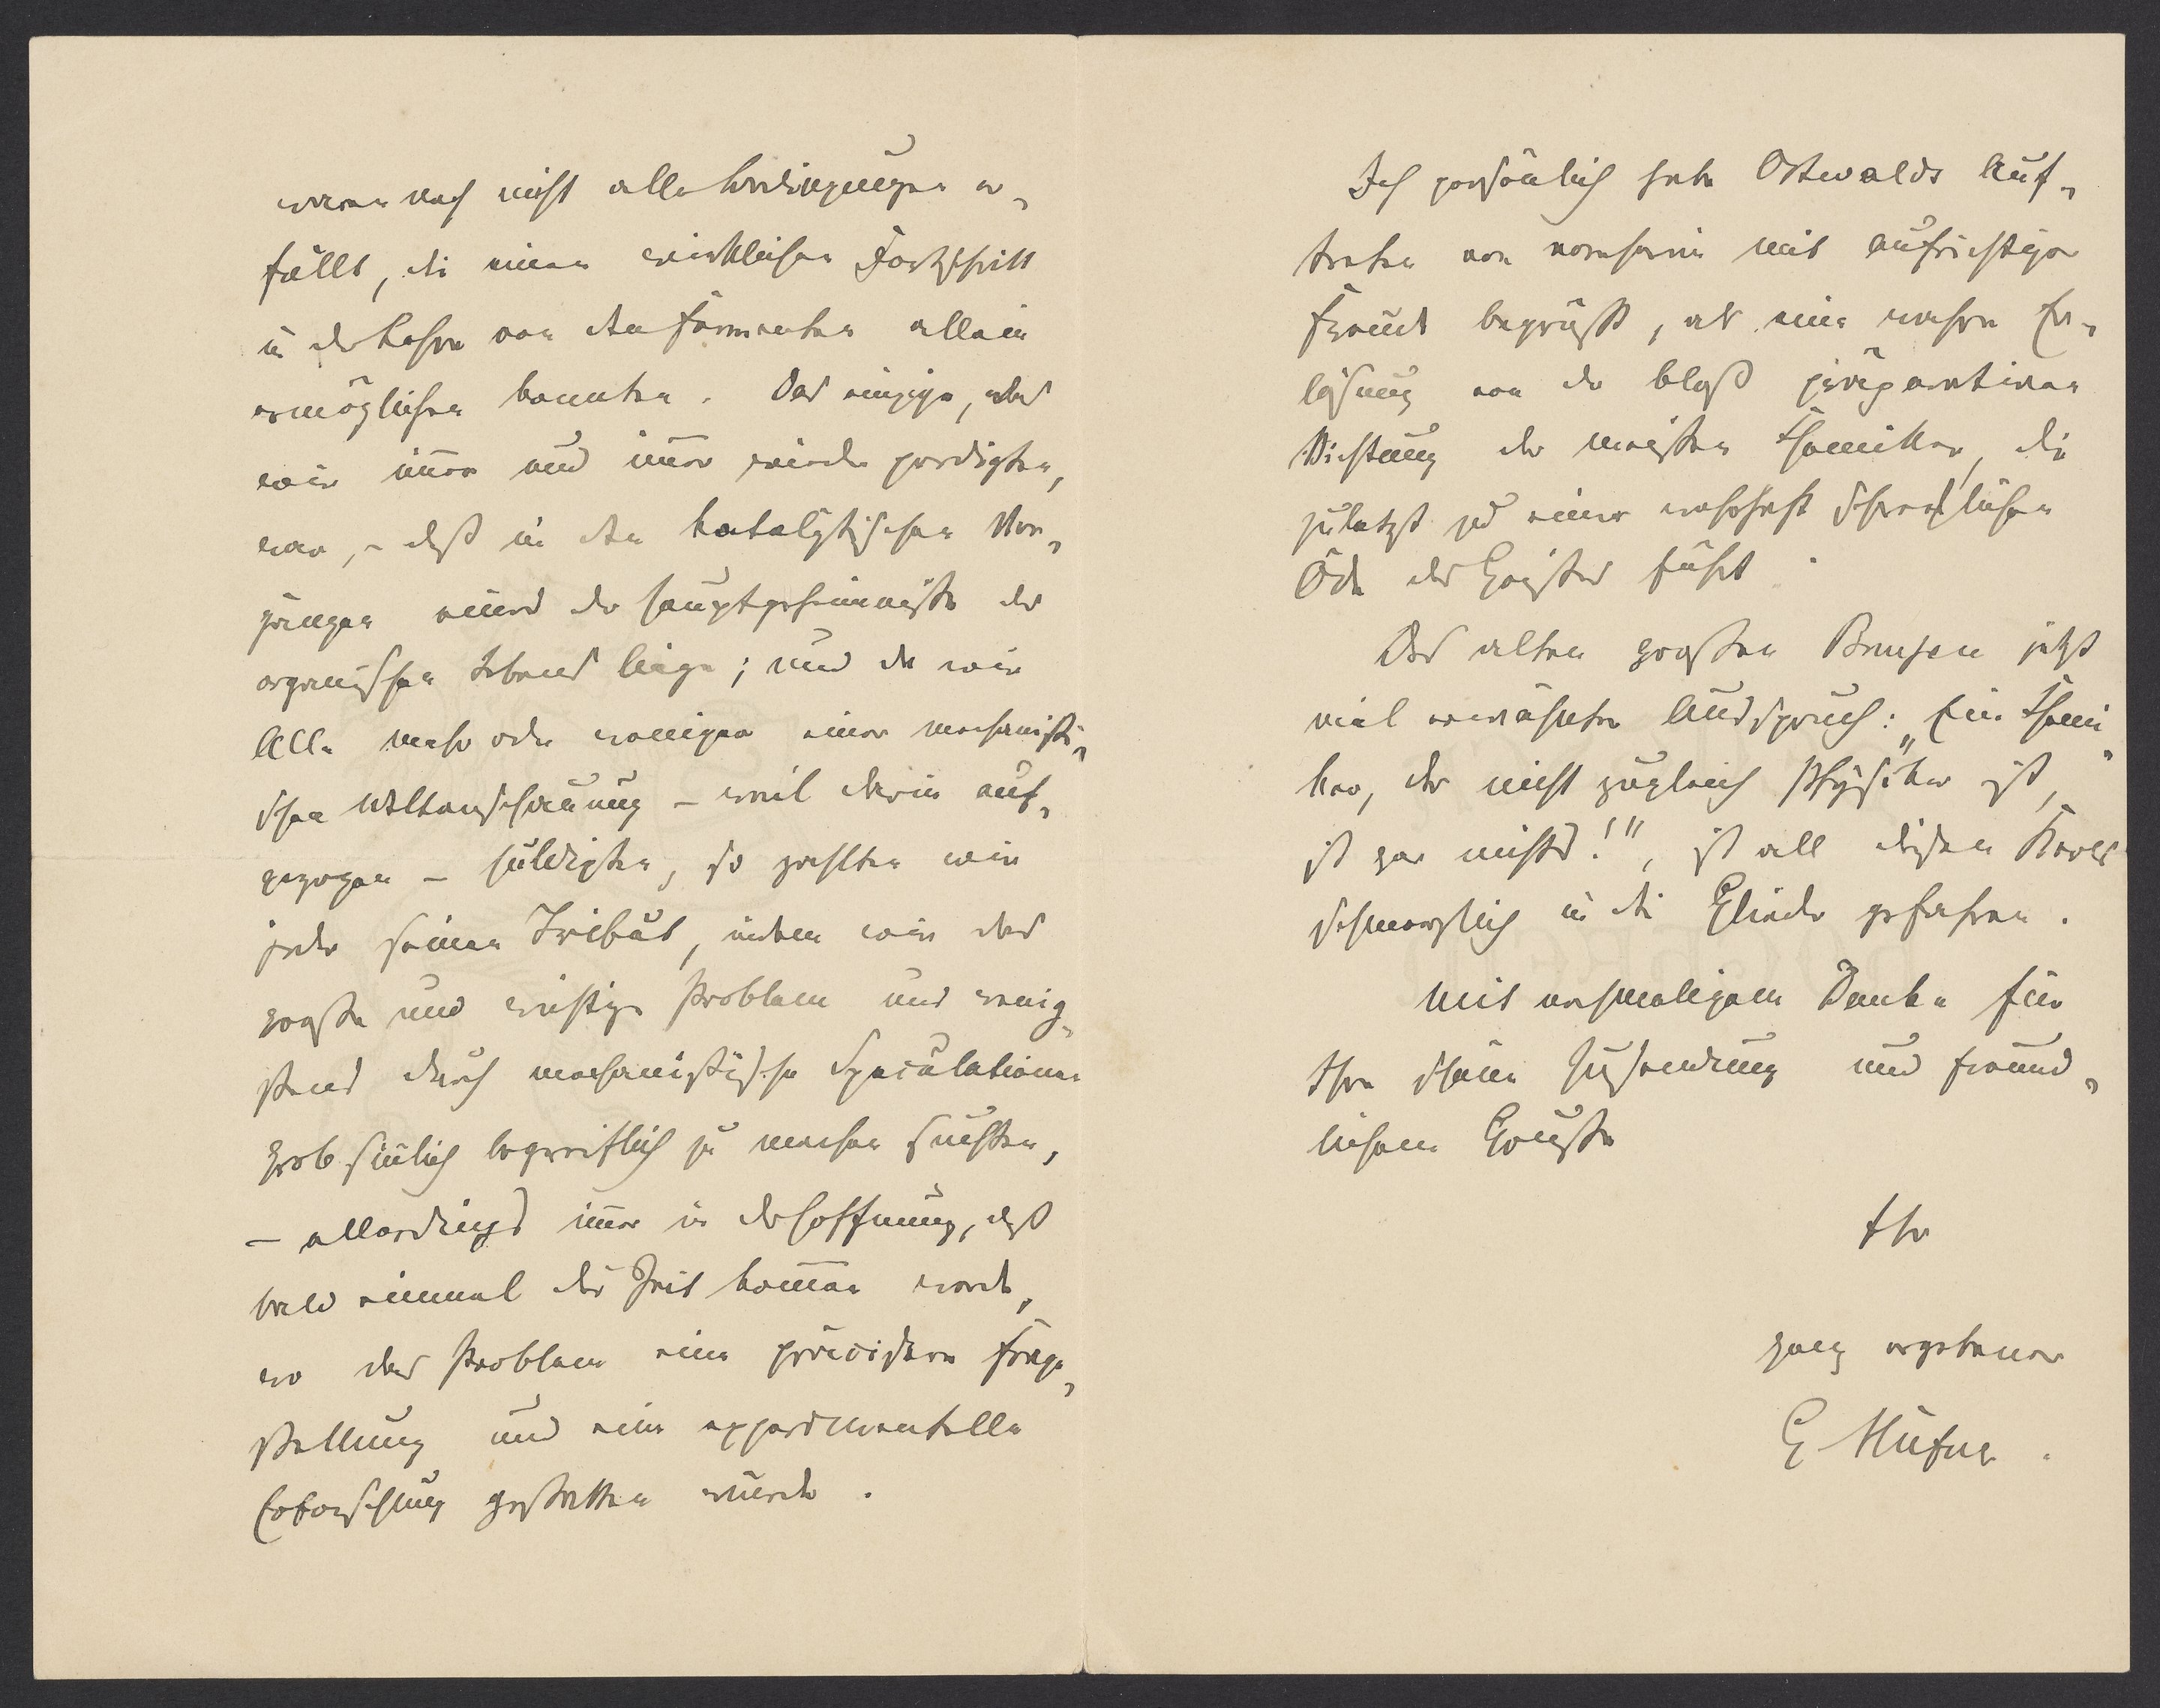 waren noch nicht alle Bedingungen er-
füllt, die einen wirklichen Fortschritt
in der Lehre von den Fermenten allein
ermöglichen konnten. Das einzige, was
wir im̅er und im̅er wieder predigten,
war, – daß in den katalytischen Vor-
gängen eines der Hauptgeheimnisse des
organischen Lebens liege; und da wir
Alle mehr oder weniger einer mechanisti-
schen Weltanschauung – weil darin auf-
gezogen – huldigten, so zahlten wir
jeder seinen Tribut, indem wir das
große und wichtige Problem uns wenig-
stens durch mechanistische Speculationen
grob sin̅lich begreiflich zu machen suchten,
– allerdings im̅er in der Hoffnung, daß
bald einmal die Zeit kom̅en werde,
wo das Problem eine präcisere Frage-
stellung und eine experimentelle
Erforschung gestatten würde.
Ich persönlich habe Ostwalds Auf-
treten von vornherein mit aufrichtiger
Freude begrüßt, als eine wahre Er-
lösung von der bloß präparativen
Richtung der meisten Chemiker, die
zuletzt zu einer wahrhaft schrecklichen
Öde des Geistes führt.
Des alten großen Bunsen jetzt
viel erwähnter Ausspruch: „Ein Chemi-
ker, der nicht zugleich Physiker ist,
ist gar nichts!", ist all diesen
schmerzlich in die Glieder gefahren.
Mit nochmaligem Danke für
Ihre schöne Zusendung und freund-
lichem Gruße
Ihr
ganz ergebener
G Hüfner.